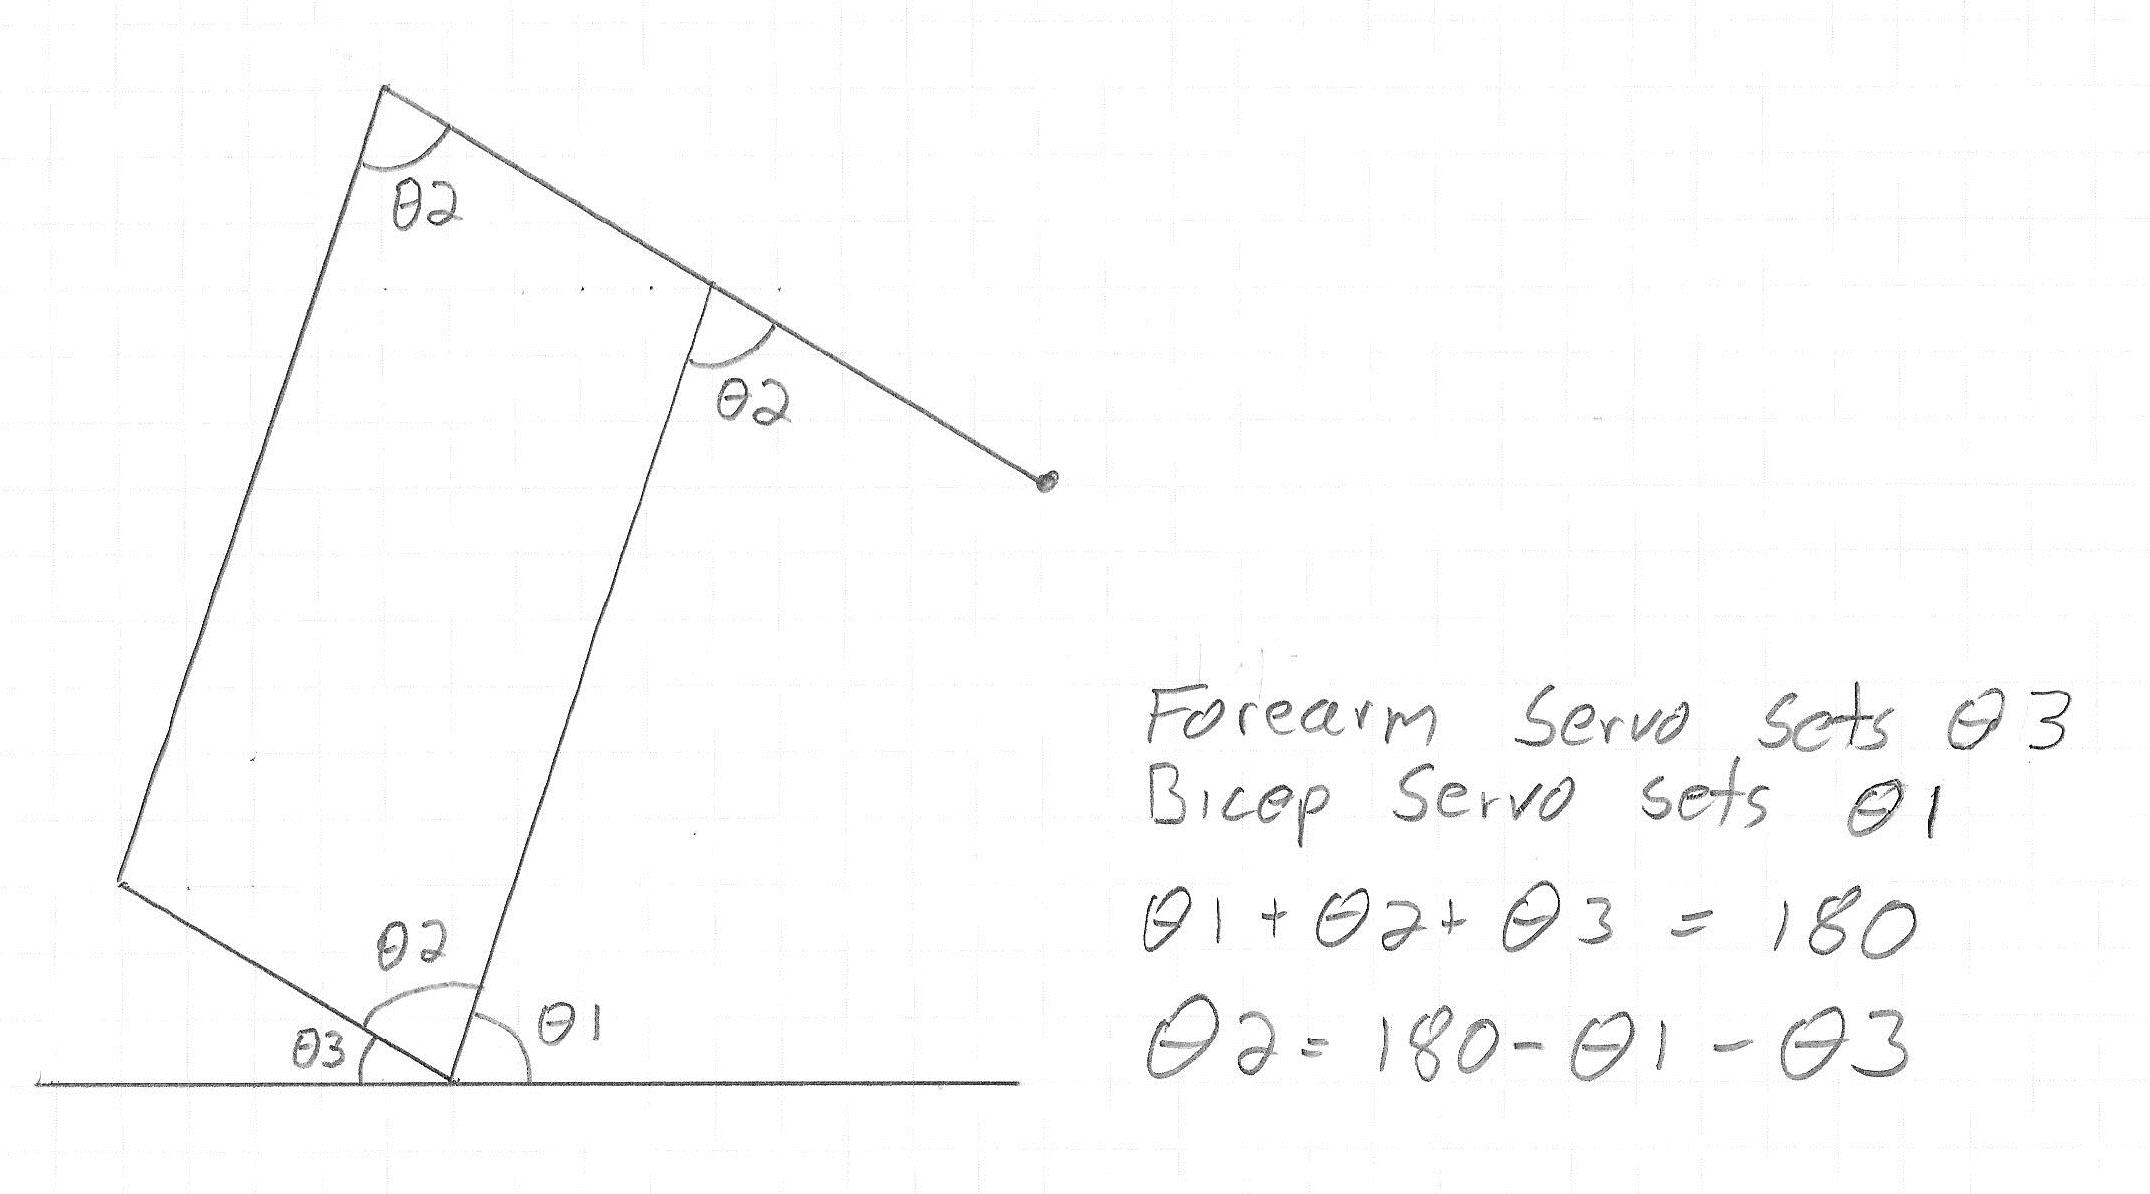 θ2
θ2
θ2
θ3
θ1
Forearm Servo sets θ3
Bicep Servo sets θ1
θ1 + θ2 + θ3 = 180
θ2 = 180 - θ1 - θ3